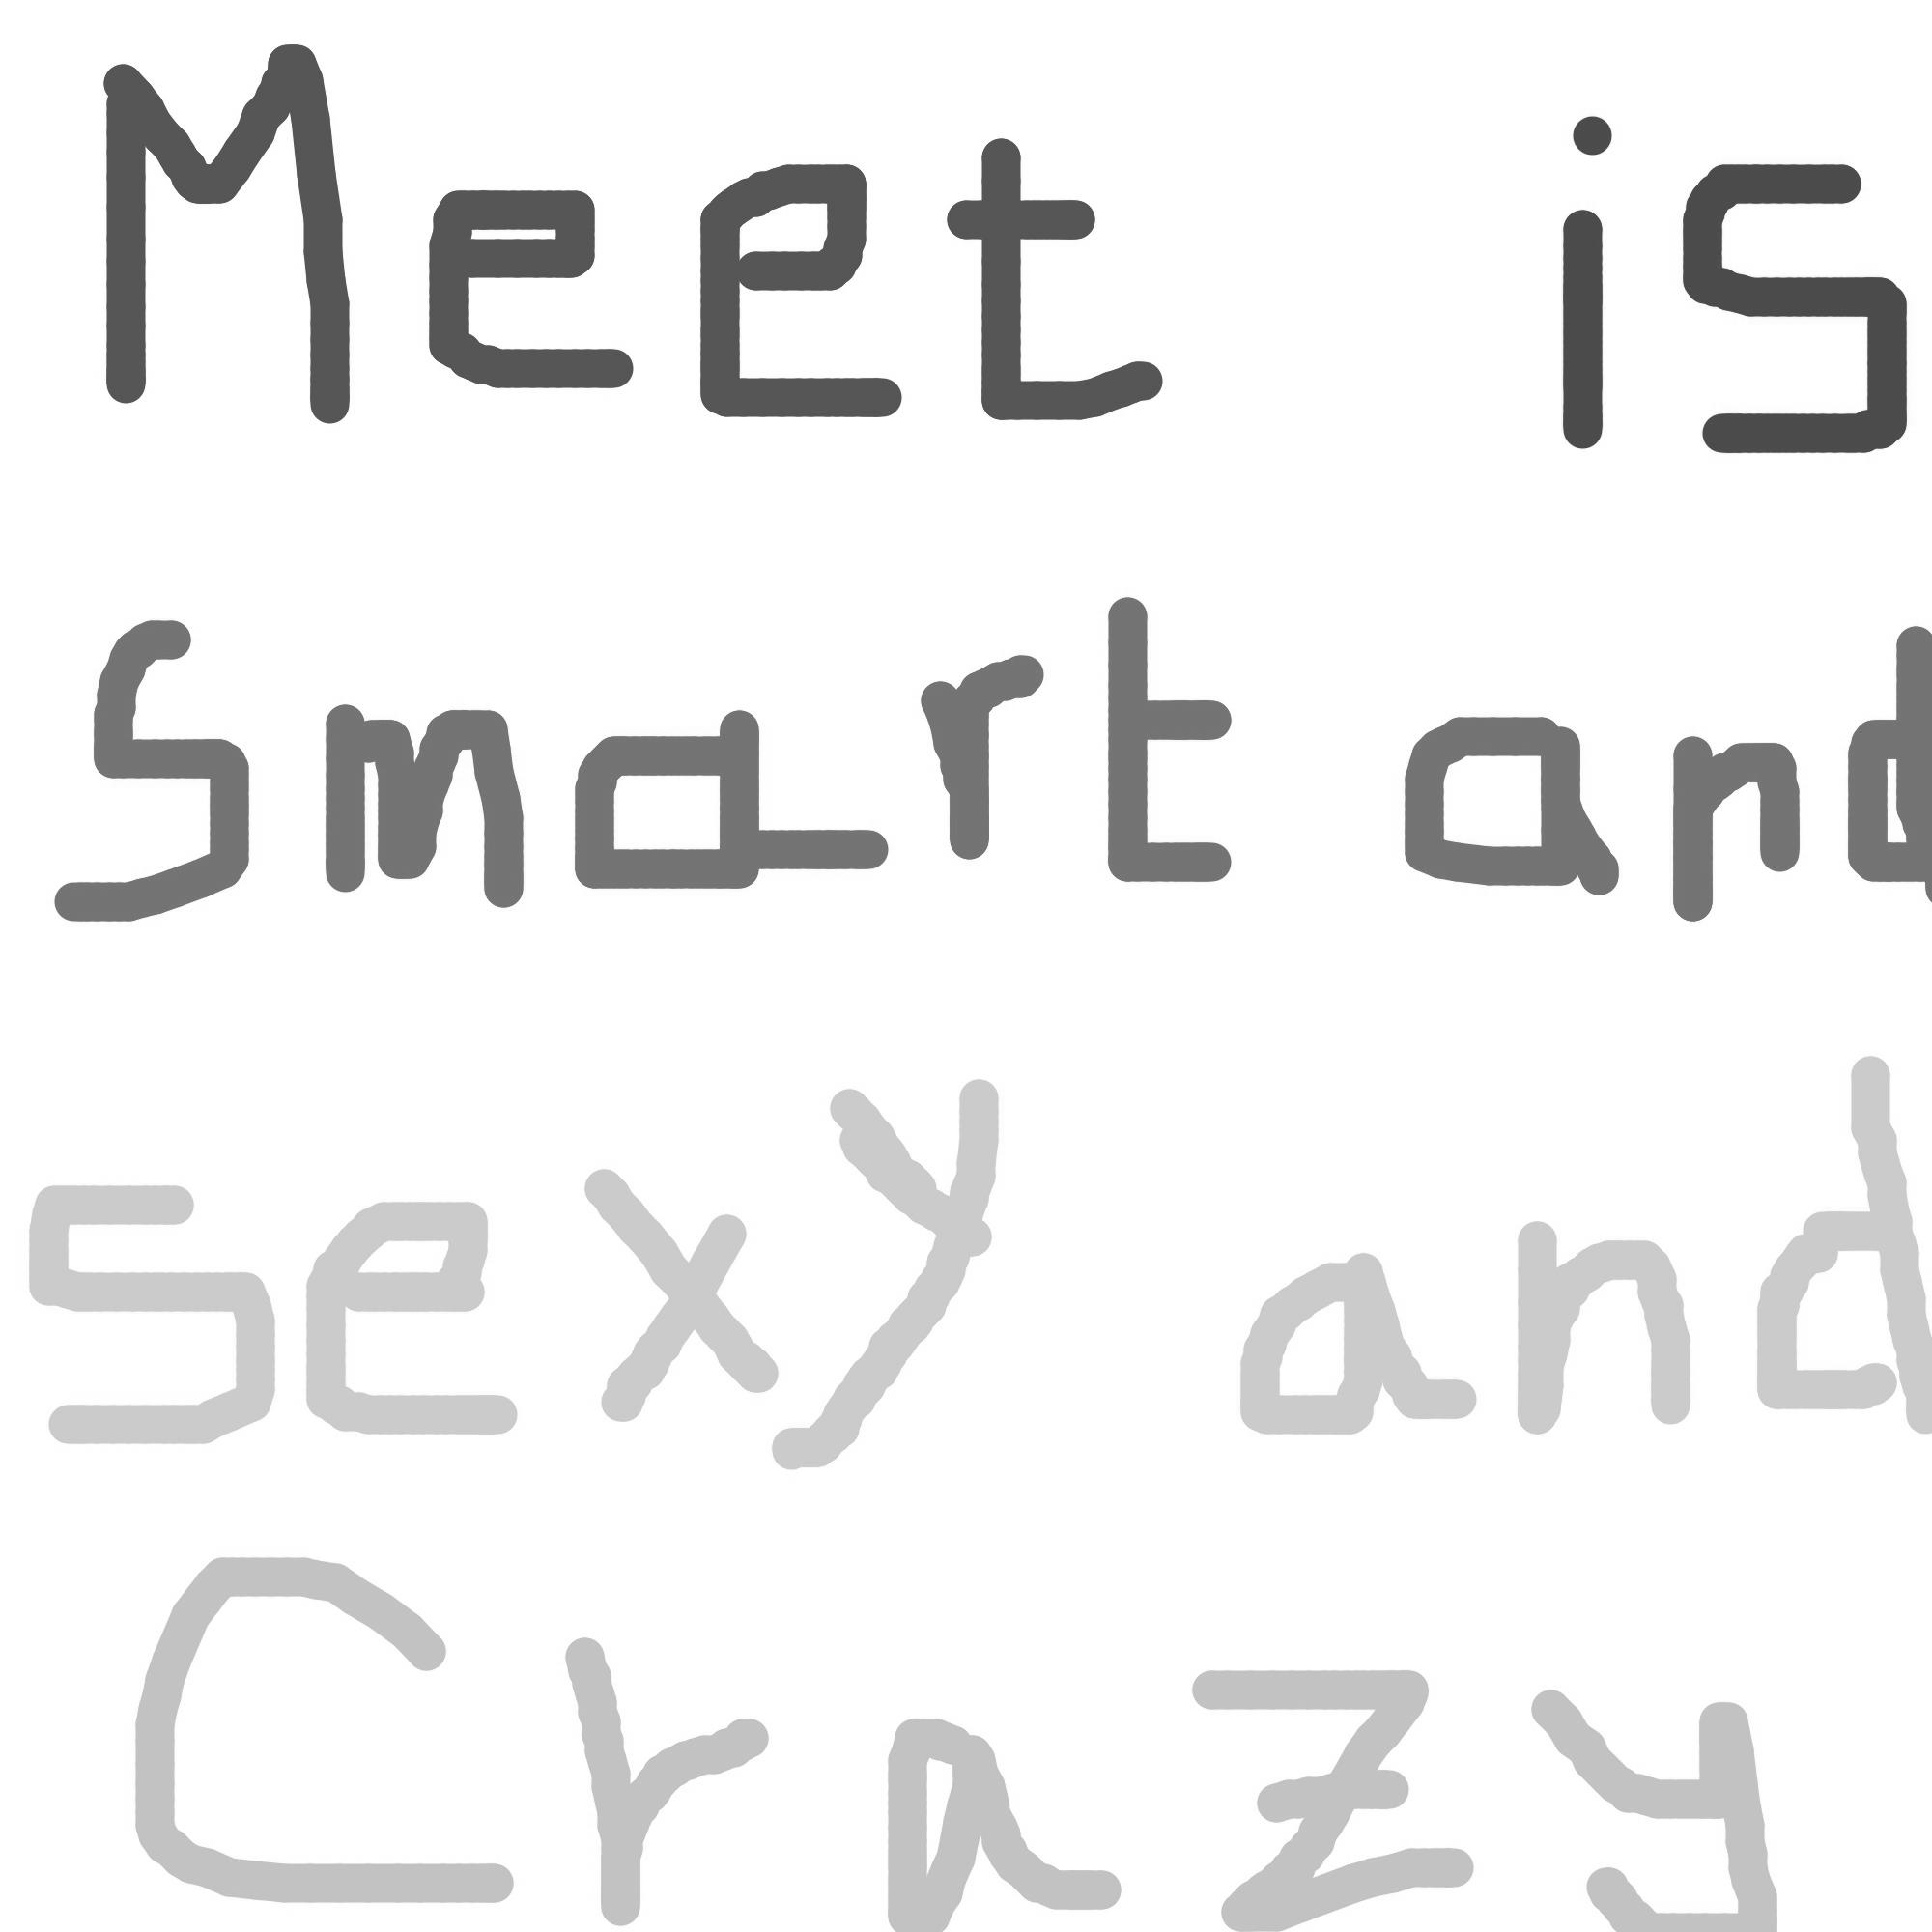 Meet is
Smart and
sexy and
Crazy